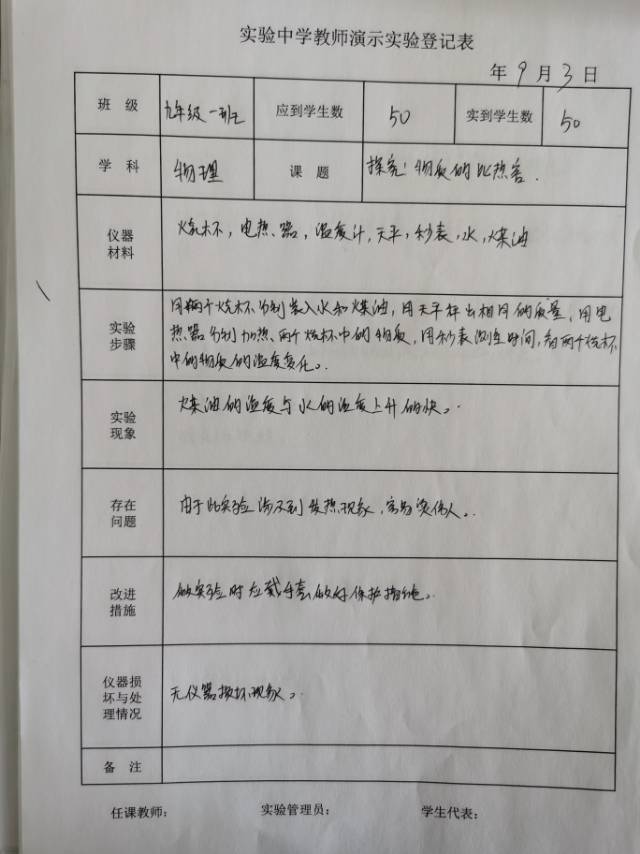 实验中学教师演示实验登记表
年 9 月 3 日
班 级 九年级一班 应到学生数 50 实到学生数 50
学 科 物理 课 题 探究:物质的比热容.
仪器
材料
烧杯,电热器,温度计,天平,秒表,水,煤油
实验
步骤
用两个烧杯分别装入水和煤油,用天平秤出相同的质量,用电
热器分别加热两个烧杯中的物质,用秒表测量时间,看两个烧杯
中的物质的温度变化。
实验
现象
煤油的温度与水的温度上升的快。
存在
问题
由于此实验涉及到发热现象,容易烫伤人。
改进
措施
做实验时应戴手套,做好保护措施。
仪器损
坏与处
理情况
无仪器损坏现象。
备 注
任课教师: 实验管理员: 学生代表: